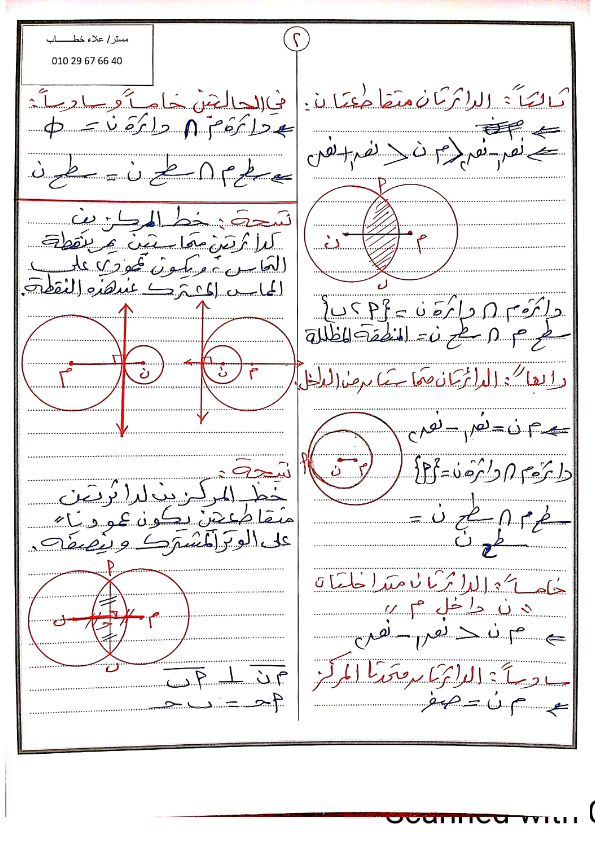 مستر/ علاء خطاب
010 29 67 66 40
٢
ثالثاً: الدائرتان متقاطعتان:
← نق₁ - نق₂ < م ن < نق₁ + نق₂
م
ن
P
ب
دائرة م ∩ دائرة ن = {P ، ب}
سطح م ∩ سطح ن = المنطقة المظللة
رابعاً: الدائرتان متماستان من الداخل.
← م ن = نق₁ - نق₂
دائرة م ∩ دائرة ن = {P}
سطح م ∩ سطح ن =
سطح ن
P
ن
م
خامساً: الدائرتان متداخلتان
" ن داخل م "
← م ن < نق₁ - نق₂
سادساً: الدائرتان متحدتا المركز
← م ن = صفر
في الحالتين خامساً وسادساً:
← دائرة م ∩ دائرة ن = ϕ
← سطح م ∩ سطح ن = سطح ن
نتيجة: خط المركزين
لدائرتين متماستين يمر بنقطة
التماس، ويكون عمودي على
المماس المشترك عند هذه النقطة.
م
ن
ن
م
نتيجة:
خط المركزين لدائرتين
متقاطعتين يكون عمودياً
على الوتر المشترك وينصفه.
P
م
ن
ب
م ن ⊥ P ب
P جـ = ب جـ
Scanned with